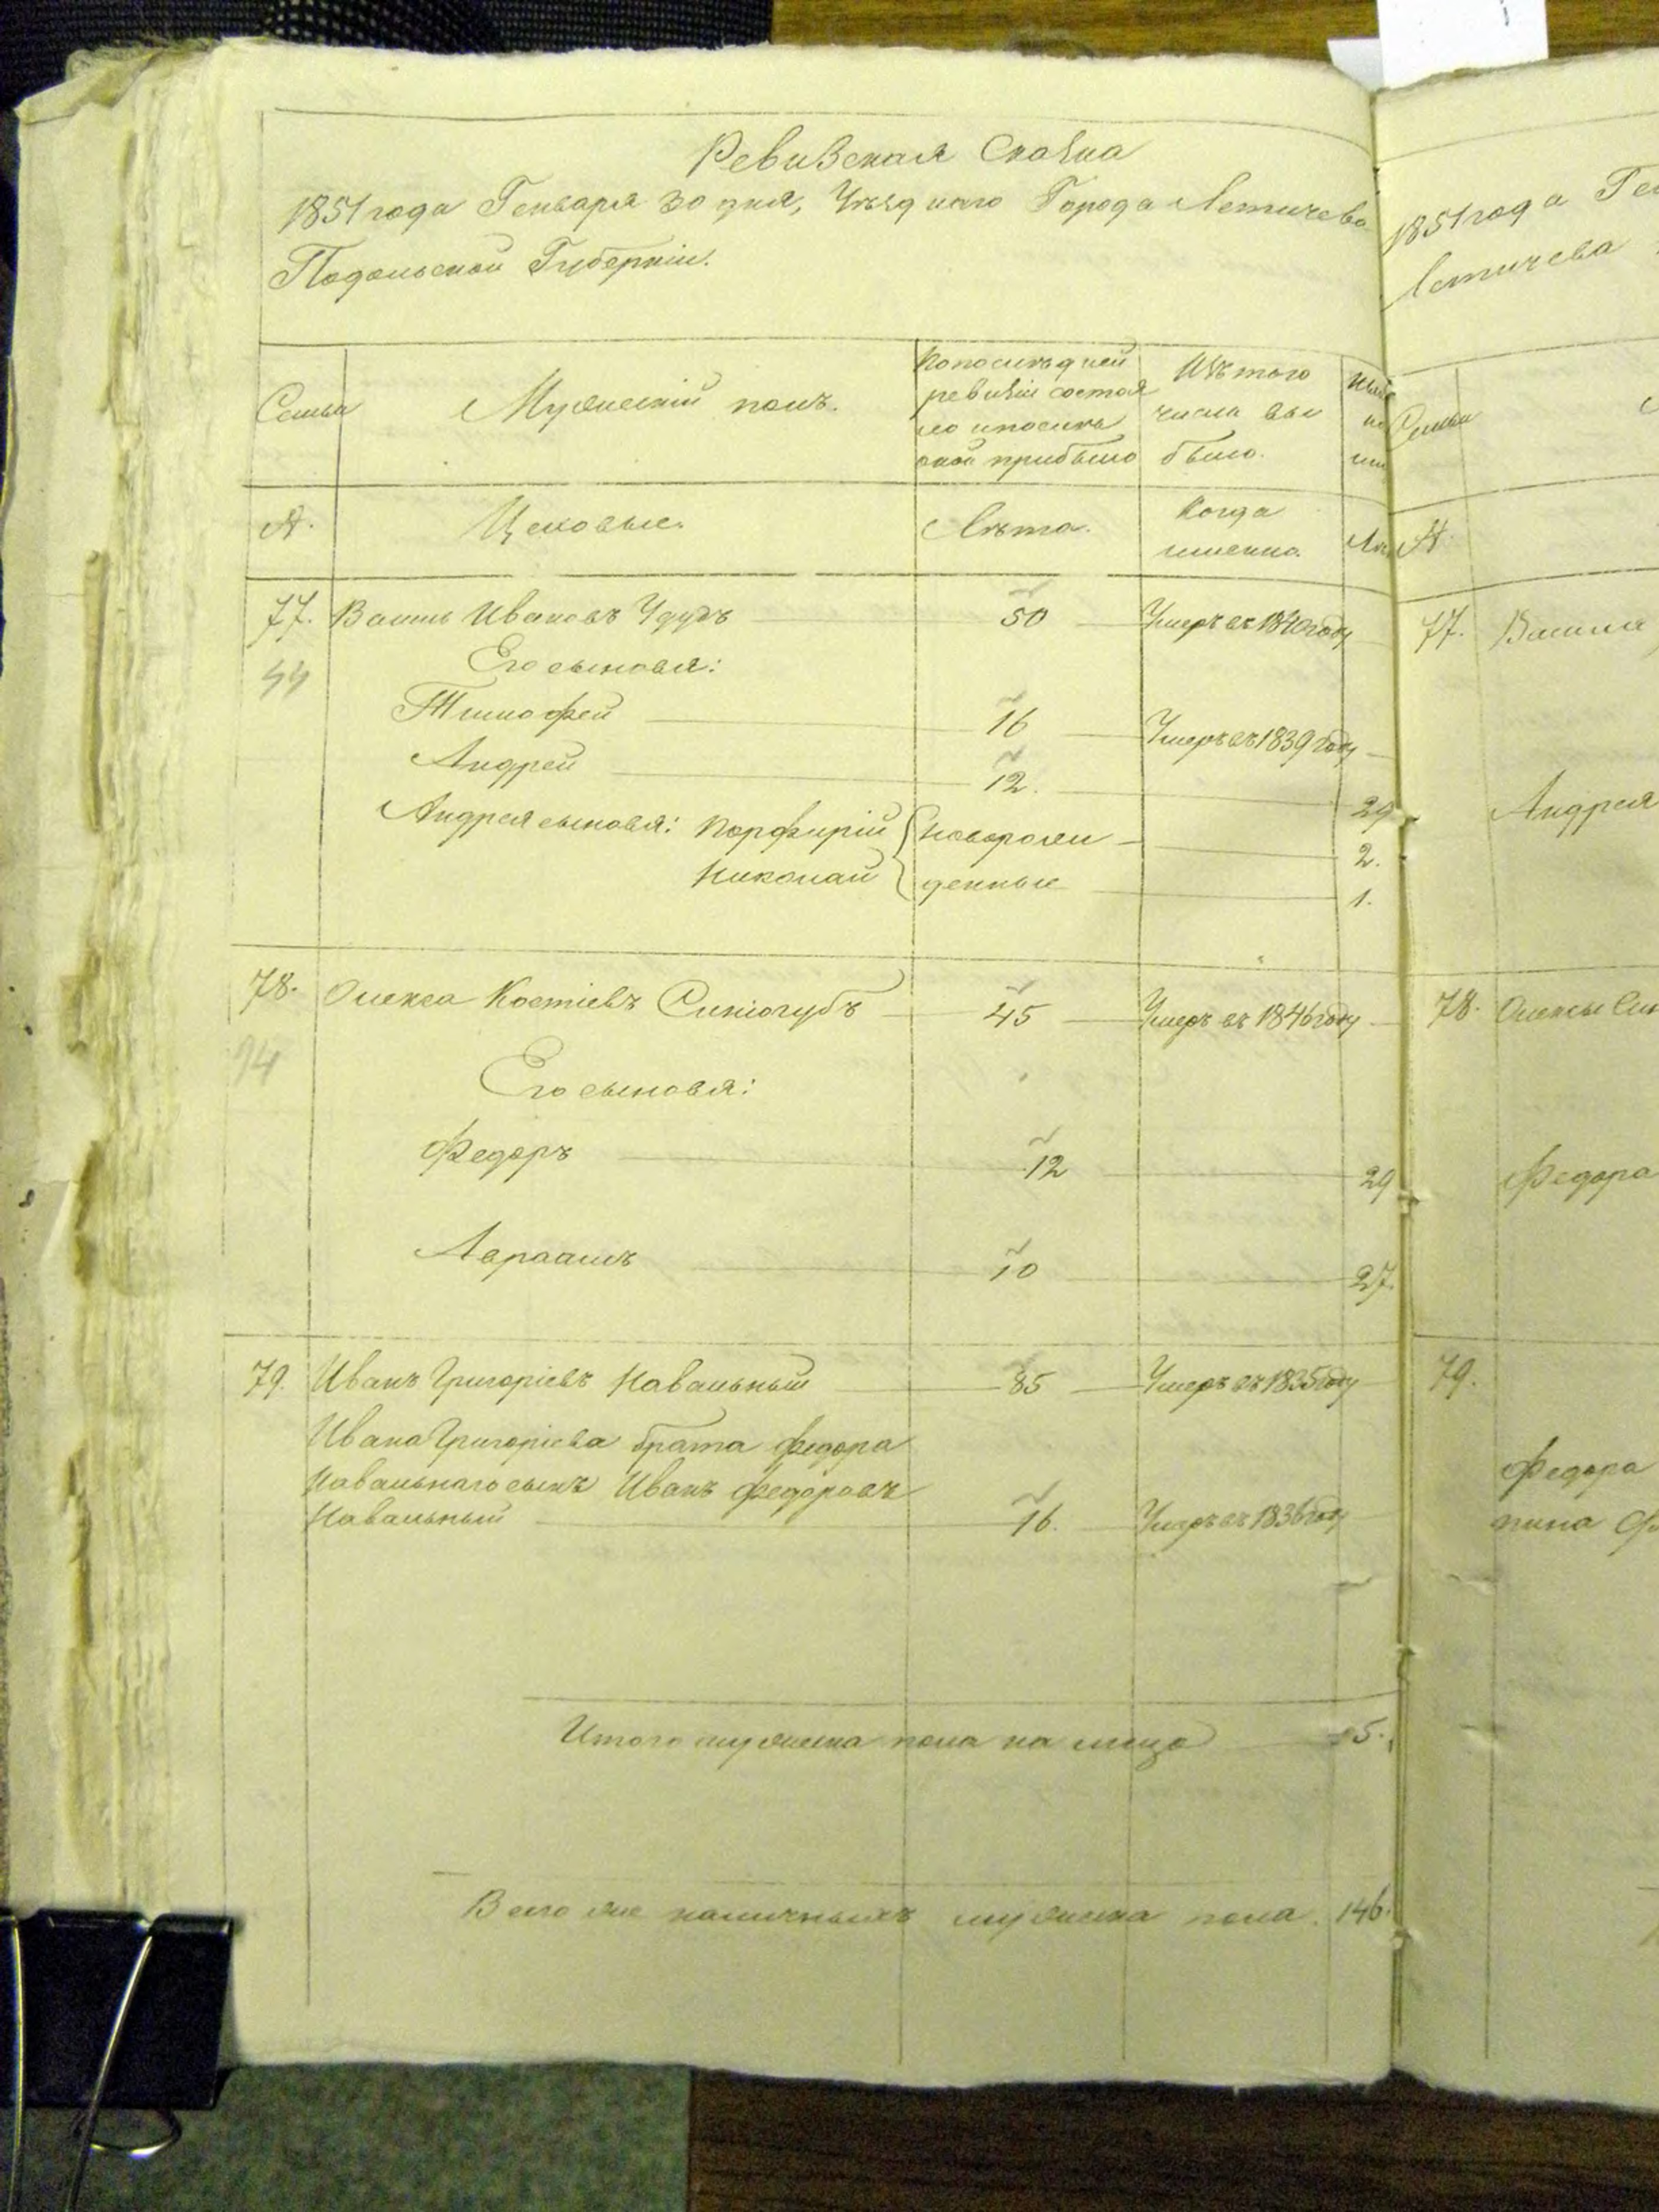 Ревизская Сказка
1851 года Генваря 30 дня, Уѣзднаго Города Летичева
Подольской Губерніи.
Семьи
Мужескій полъ.
По послѣдней
ревизіи состоя
ло и послѣ
оной прибыло
Изъ того
числа вы
было.
А.
Цеховые.
Лѣта.
Когда
именно.
77. Василь Ивановъ 50 Умеръ въ 1840 году
44
Его сыновья:
Тимофей 16 Умеръ въ 1839 году
Андрей 12. 29
Андрея сыновья: Порфирій новорож 2.
Николай денные 1.
78. Олекса Костіевъ Синіогубъ 45 Умеръ въ 1846 году
94
Его сыновья:
Федоръ 12 29
Авраамъ 10 27.
79. Иванъ Григоріевъ Навальный 85 Умеръ въ 1835 году
Ивана Григоріева брата Федора
Навальнаго сынъ Иванъ Федоровъ
Навальный 16. Умеръ въ 1836 году
Итого мужеска пола на лицо 5.
Всего же наличныхъ мужеска пола. 146.
1851 года
Летичева
Семьи
А.
77. Василя
Андрея
78. Олексы
Федора
79.
Федора